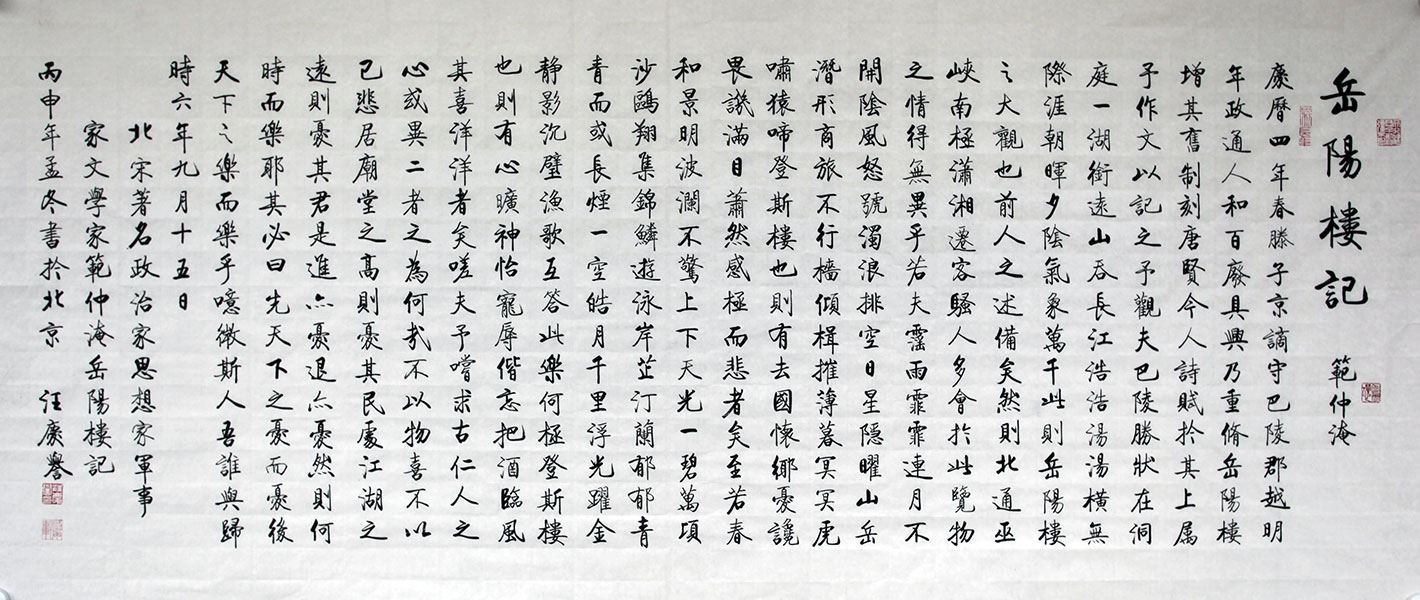 岳陽樓記
範仲淹
慶曆四年春滕子京謫守巴陵郡越明
年政通人和百廢具興乃重脩岳陽樓
增其舊制刻唐賢今人詩賦於其上属
予作文以記之予觀夫巴陵勝狀在洞
庭一湖銜遠山吞長江浩浩湯湯橫無
際涯朝暉夕陰氣象萬千此則岳陽樓
之大觀也前人之述備矣然則北通巫
峽南極瀟湘遷客騷人多會於此覽物
之情得無異乎若夫霪雨霏霏連月不
開陰風怒號濁浪排空日星隱曜山岳
潛形商旅不行檣傾楫摧薄暮冥冥虎
嘯猿啼登斯樓也則有去國懷鄉憂讒
畏譏滿目蕭然感極而悲者矣至若春
和景明波瀾不驚上下天光一碧萬頃
沙鷗翔集錦鱗遊泳岸芷汀蘭郁郁青
青而或長煙一空皓月千里浮光躍金
静影沉璧漁歌互答此樂何極登斯樓
也則有心曠神怡寵辱偕忘把酒臨風
其喜洋洋者矣嗟夫予嘗求古仁人之
心或異二者之為何哉不以物喜不以
己悲居廟堂之高則憂其民處江湖之
遠則憂其君是進亦憂退亦憂然則何
時而樂耶其必曰先天下之憂而憂後
天下之樂而樂乎噫微斯人吾誰與歸
時六年九月十五日
北宋著名政治家思想家軍事
家文學家範仲淹岳陽樓記
丙申年孟冬書於北京 汪慶譽